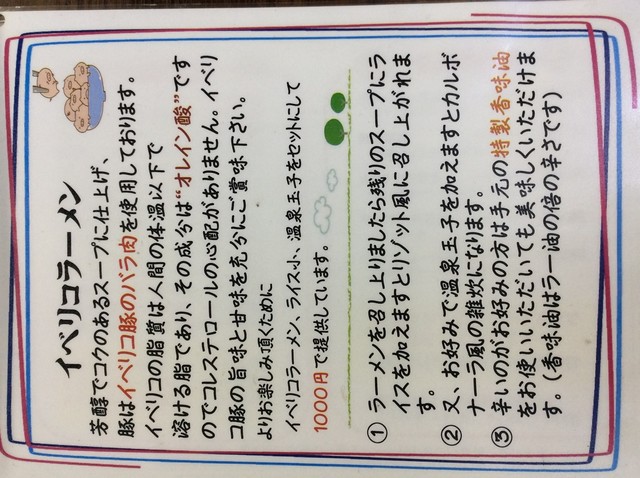 イベリコラーメン
芳醇でコクのあるスープに仕上げ、
豚はイベリコ豚のバラ肉を使用しております。
イベリコの脂質は人間の体温以下で
溶ける脂であり、その成分は“オレイン酸”です
のでコレステロールの心配がありません。イベリ
コ豚の旨味と甘味を充分にご賞味下さい。
よりお楽しみ頂くために
イベリコラーメン、ライス小、温泉玉子をセットにして
1000円で提供しています。
① ラーメンを召し上りましたら残りのスープにラ
イスを加えますとリゾット風に召し上がれま
す。
② 又、お好みで温泉玉子を加えますとカルボ
ナーラ風の雑炊になります。
③ 辛いのがお好みの方は手元の特製香味油
をお使いいただいても美味しくいただけま
す。(香味油はラー油の倍の辛さです)